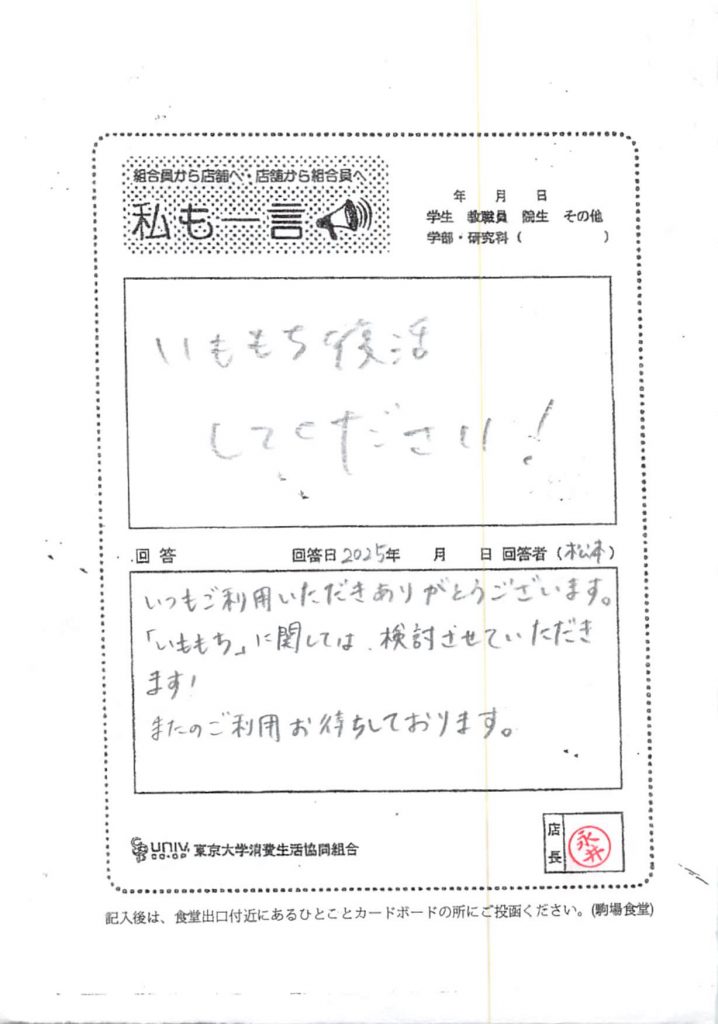 組合員から店舗へ・店舗から組合員へ
私も一言
年 月 日
学生 教職員 院生 その他
学部・研究科( )
いももち復活
してください!
回答 回答日2025年 月 日 回答者(松本)
いつもご利用いただきありがとうございます。
「いももち」に関しては、検討させていただき
ます!
またのご利用お待ちしております。
UNIV.
CO-OP
東京大学消費生活協同組合
店長
永井
記入後は、食堂出口付近にあるひとことカードボードの所にご投函ください。(駒場食堂)